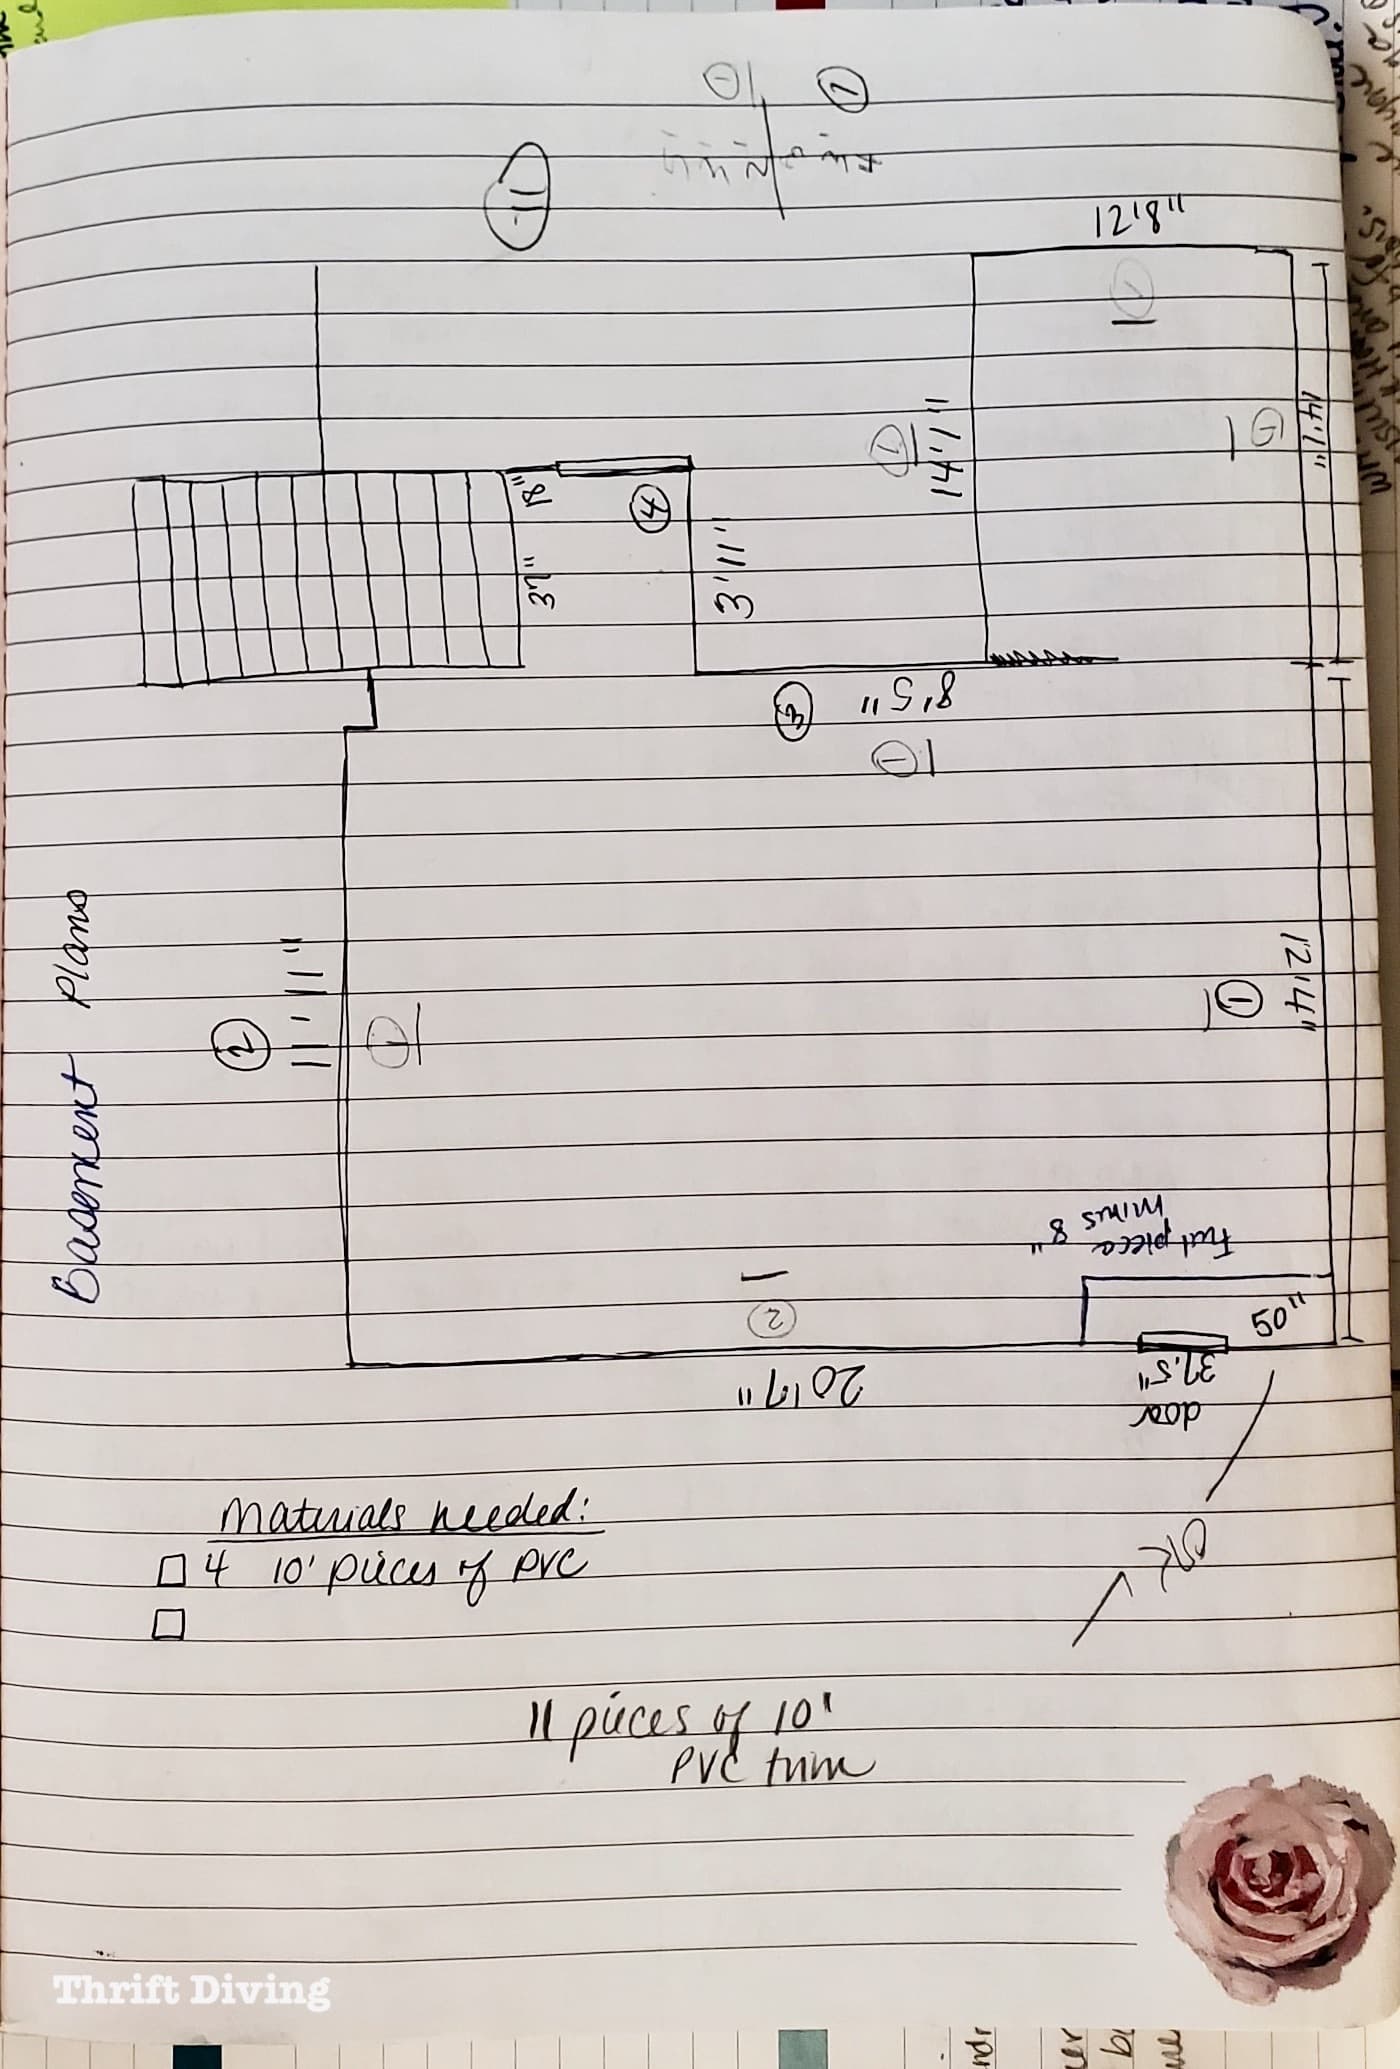 1 10
11
12'8"
1
14'1"
1
1
14'1"
18"
4
37"
3'11"
8'5"
1
Basement Plans
2
11'11"
1
1
12'4"
Full piece
minus 8"
2
50"
20'7"
37.5"
door
OK
Materials needed:
4 10' pieces of PVC
11 pieces of 10'
PVC trim
Thrift Diving